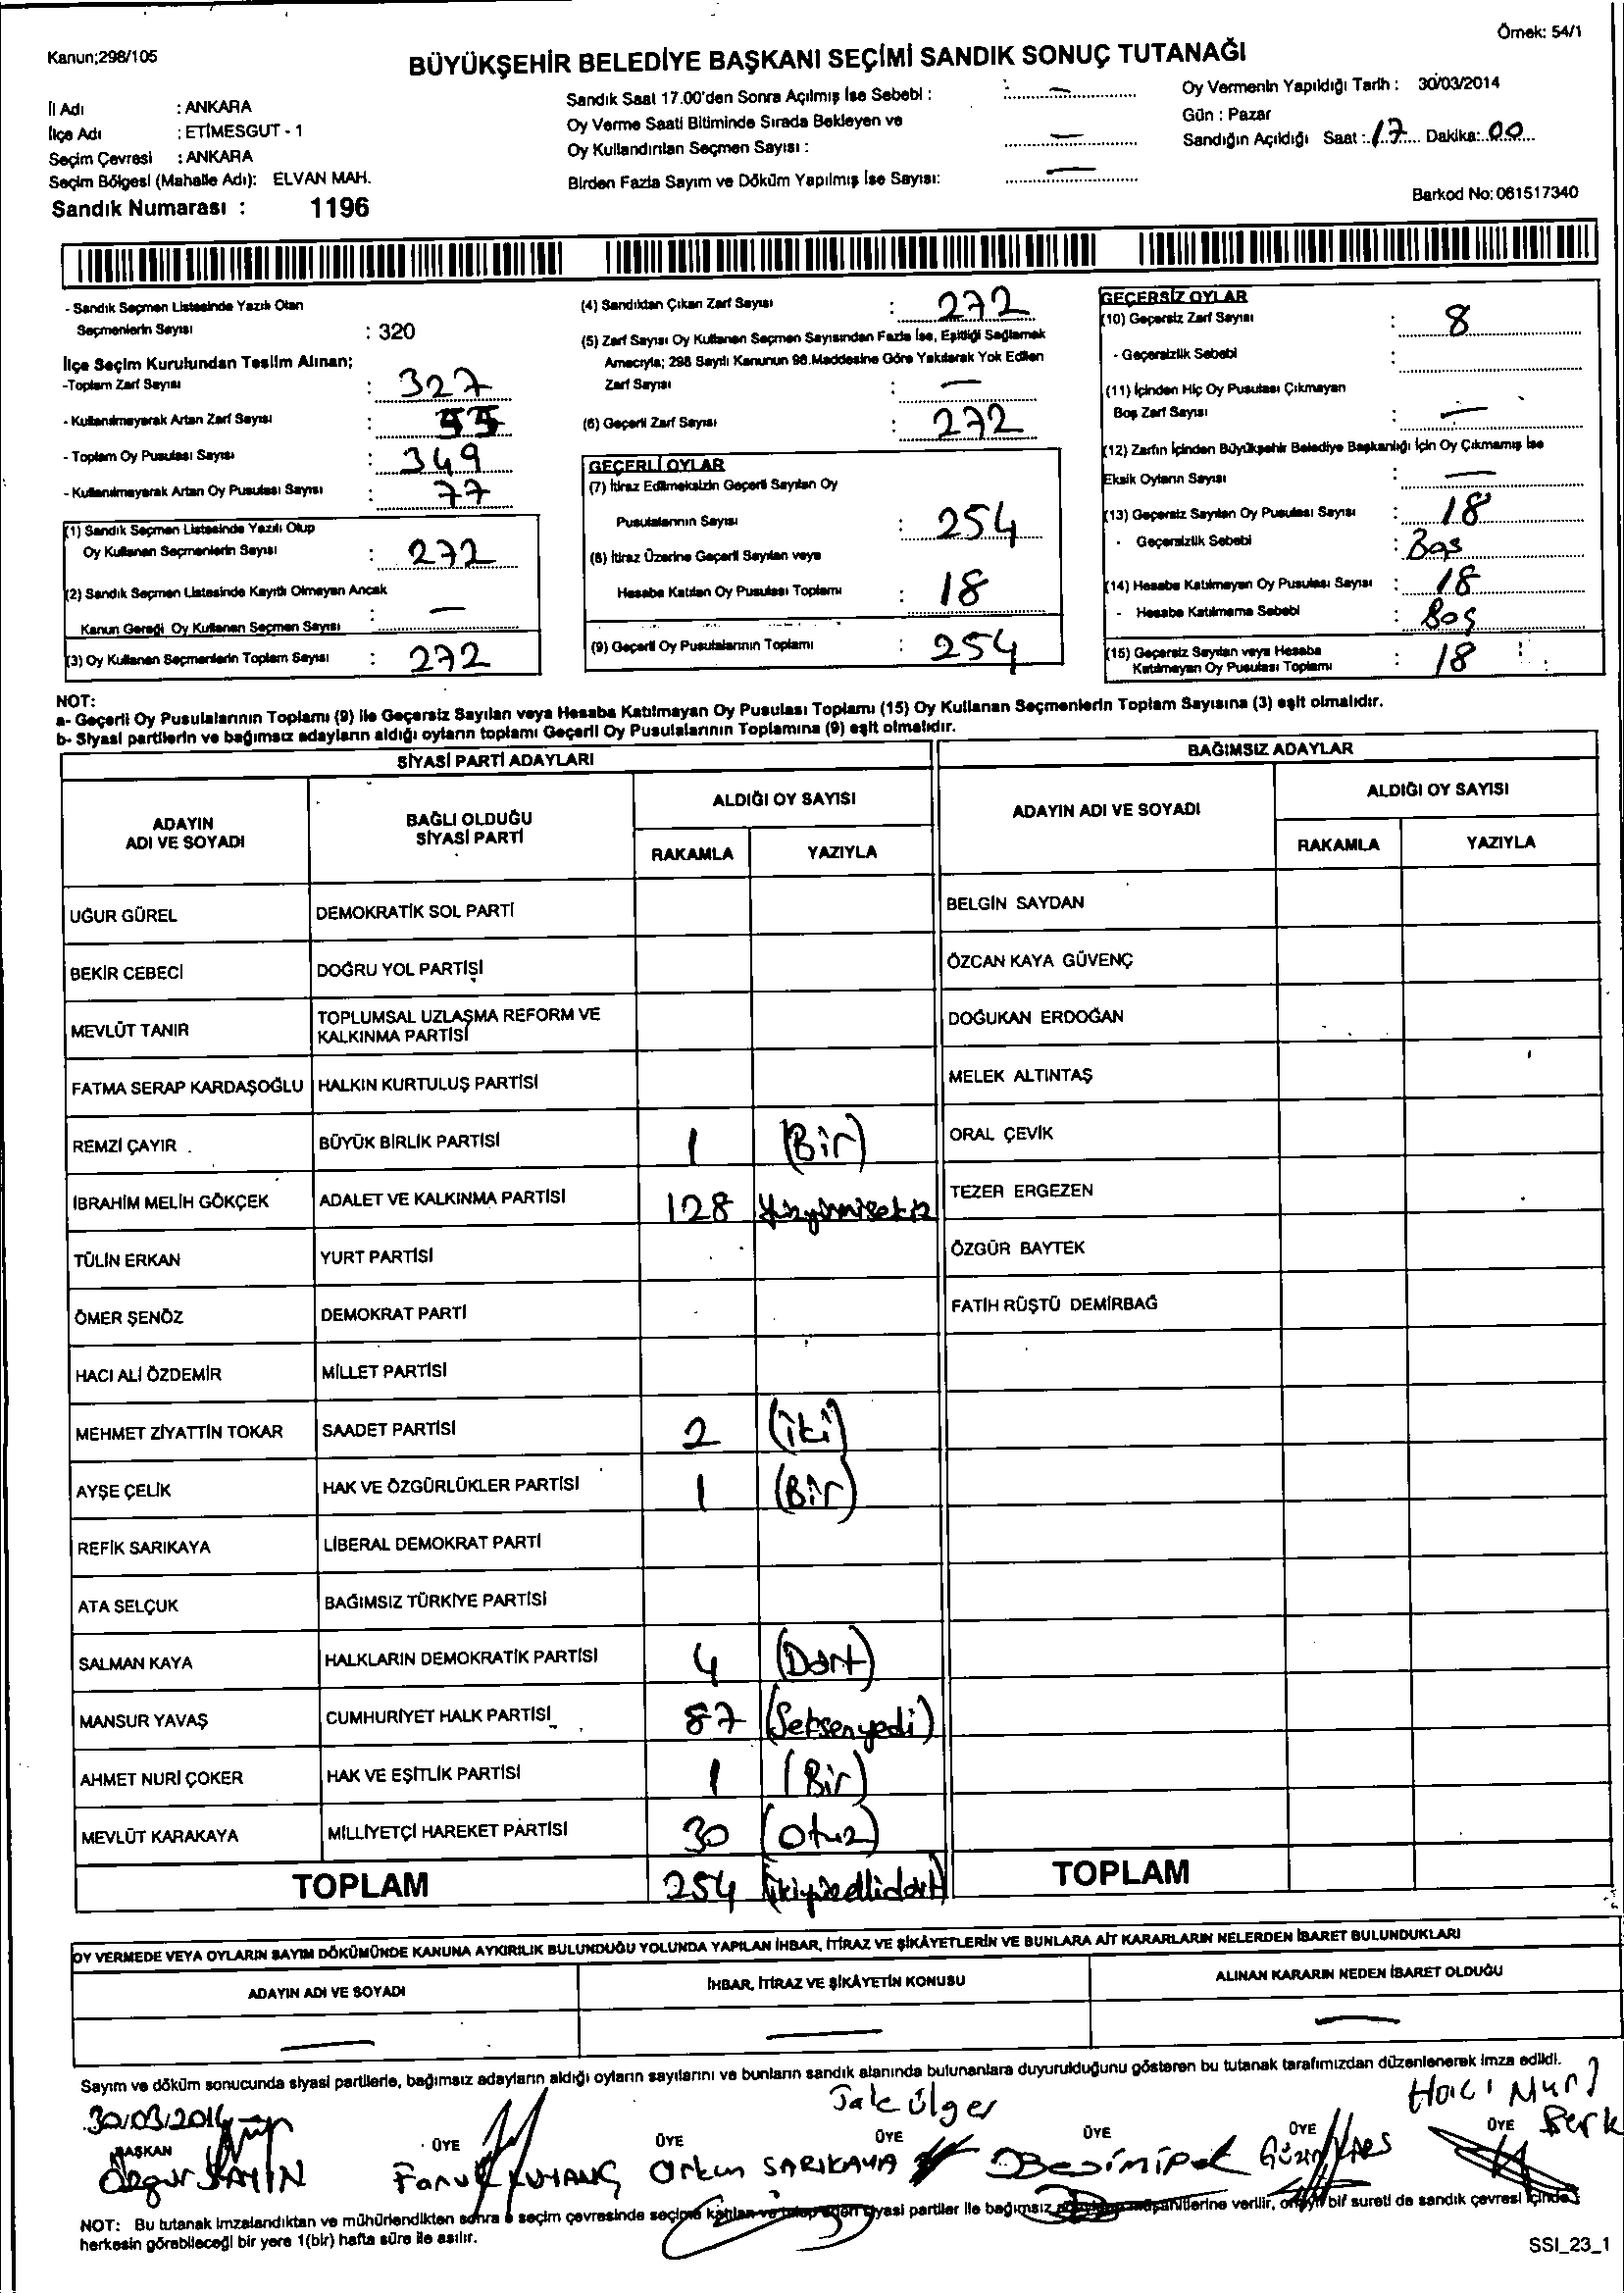 Örnek: 54/1
Kanun;298/105
BÜYÜKŞEHİR BELEDİYE BAŞKANI SEÇİMİ SANDIK SONUÇ TUTANAĞI
İl Adı : ANKARA
İlçe Adı : ETİMESGUT - 1
Seçim Çevresi : ANKARA
Seçim Bölgesi (Mahalle Adı): ELVAN MAH.
Sandık Numarası : 1196
Sandık Saat 17.00'den Sonra Açılmış İse Sebebi : —
Oy Verme Saati Bitiminde Sırada Bekleyen ve
Oy Kullandırılan Seçmen Sayısı : —
Birden Fazla Sayım ve Döküm Yapılmış İse Sayısı: —
Oy Vermenin Yapıldığı Tarih : 30/03/2014
Gün : Pazar
Sandığın Açıldığı Saat : 17 Dakika: 00
Barkod No: 061517340
- Sandık Seçmen Listesinde Yazılı Olan
Seçmenlerin Sayısı : 320
İlçe Seçim Kurulundan Teslim Alınan;
-Toplam Zarf Sayısı : 327
- Kullanılmayarak Artan Zarf Sayısı : 55
- Toplam Oy Pusulası Sayısı : 349
- Kullanılmayarak Artan Oy Pusulası Sayısı : 77
(1) Sandık Seçmen Listesinde Yazılı Olup
Oy Kullanan Seçmenlerin Sayısı : 272
(2) Sandık Seçmen Listesinde Kayıtlı Olmayan Ancak
Kanun Gereği Oy Kullanan Seçmen Sayısı : —
(3) Oy Kullanan Seçmenlerin Toplam Sayısı : 272
(4) Sandıktan Çıkan Zarf Sayısı : 272
(5) Zarf Sayısı Oy Kullanan Seçmen Sayısından Fazla İse, Eşitliği Sağlamak
Amacıyla; 298 Sayılı Kanunun 98.Maddesine Göre Yakılarak Yok Edilen
Zarf Sayısı : —
(6) Geçerli Zarf Sayısı : 272
GEÇERLİ OYLAR
(7) İtiraz Edilmeksizin Geçerli Sayılan Oy
Pusulalarının Sayısı : 254
(8) İtiraz Üzerine Geçerli Sayılan veya
Hesaba Katılan Oy Pusulası Toplamı : 18
(9) Geçerli Oy Pusulalarının Toplamı : 254
GEÇERSİZ OYLAR
(10) Geçersiz Zarf Sayısı : 8
- Geçersizlik Sebebi :
(11) İçinden Hiç Oy Pusulası Çıkmayan
Boş Zarf Sayısı : —
(12) Zarfın İçinden Büyükşehir Belediye Başkanlığı İçin Oy Çıkmamış İse
Eksik Oyların Sayısı : —
(13) Geçersiz Sayılan Oy Pusulası Sayısı : 18
- Geçersizlik Sebebi : Boş
(14) Hesaba Katılmayan Oy Pusulası Sayısı : 18
- Hesaba Katılmama Sebebi : Boş
(15) Geçersiz Sayılan veya Hesaba
Katılmayan Oy Pusulası Toplamı : 18
NOT:
a- Geçerli Oy Pusulalarının Toplamı (9) ile Geçersiz Sayılan veya Hesaba Katılmayan Oy Pusulası Toplamı (15) Oy Kullanan Seçmenlerin Toplam Sayısına (3) eşit olmalıdır.
b- Siyasi partilerin ve bağımsız adayların aldığı oyların toplamı Geçerli Oy Pusulalarının Toplamına (9) eşit olmalıdır.
SİYASİ PARTİ ADAYLARI
BAĞIMSIZ ADAYLAR
ADAYIN ADI VE SOYADI
BAĞLI OLDUĞU SİYASİ PARTİ
ALDIĞI OY SAYISI
RAKAMLA YAZIYLA
ADAYIN ADI VE SOYADI
ALDIĞI OY SAYISI
RAKAMLA YAZIYLA
UĞUR GÜREL DEMOKRATİK SOL PARTİ BELGİN SAYDAN
BEKİR CEBECİ DOĞRU YOL PARTİSİ ÖZCAN KAYA GÜVENÇ
MEVLÜT TANIR TOPLUMSAL UZLAŞMA REFORM VE KALKINMA PARTİSİ DOĞUKAN ERDOĞAN
FATMA SERAP KARDAŞOĞLU HALKIN KURTULUŞ PARTİSİ MELEK ALTINTAŞ
REMZİ ÇAYIR BÜYÜK BİRLİK PARTİSİ 1 (Bir) ORAL ÇEVİK
İBRAHİM MELİH GÖKÇEK ADALET VE KALKINMA PARTİSİ 128 Yüzyirmisekiz TEZER ERGEZEN
TÜLİN ERKAN YURT PARTİSİ ÖZGÜR BAYTEK
ÖMER ŞENÖZ DEMOKRAT PARTİ FATİH RÜŞTÜ DEMİRBAĞ
HACI ALİ ÖZDEMİR MİLLET PARTİSİ
MEHMET ZİYATTİN TOKAR SAADET PARTİSİ 2 (iki)
AYŞE ÇELİK HAK VE ÖZGÜRLÜKLER PARTİSİ 1 (Bir)
REFİK SARIKAYA LİBERAL DEMOKRAT PARTİ
ATA SELÇUK BAĞIMSIZ TÜRKİYE PARTİSİ
SALMAN KAYA HALKLARIN DEMOKRATİK PARTİSİ 4 (Dört)
MANSUR YAVAŞ CUMHURİYET HALK PARTİSİ 87 (Seksenyedi)
AHMET NURİ ÇOKER HAK VE EŞİTLİK PARTİSİ 1 (Bir)
MEVLÜT KARAKAYA MİLLİYETÇİ HAREKET PARTİSİ 30 (Otuz)
TOPLAM 254 (ikiyüzellidört) TOPLAM
OY VERMEDE VEYA OYLARIN SAYIM DÖKÜMÜNDE KANUNA AYKIRILIK BULUNDUĞU YOLUNDA YAPILAN İHBAR, İTİRAZ VE ŞİKÂYETLERİN VE BUNLARA AİT KARARLARIN NELERDEN İBARET BULUNDUKLARI
ADAYIN ADI VE SOYADI İHBAR, İTİRAZ VE ŞİKÂYETİN KONUSU ALINAN KARARIN NEDEN İBARET OLDUĞU
— — —
Sayım ve döküm sonucunda siyasi partilerle, bağımsız adayların aldığı oyların sayılarını ve bunların sandık alanında bulunanlara duyurulduğunu gösteren bu tutanak tarafımızdan düzenlenerek imza edildi.
30/03/2014
Ülger
Hacı Nuri Berk
BAŞKAN ÜYE ÜYE ÜYE ÜYE ÜYE ÜYE
Özgur SAYIN Orkun SARIKAYA
NOT: Bu tutanak imzalandıktan ve mühürlendikten sonra seçim çevresinde seçime katılan ve talep eden siyasi partiler ile bağımsız verilir, onaylı bir sureti de sandık çevresi içinde
herkesin görebileceği bir yere 1(bir) hafta süre ile asılır.
SSI_23_1